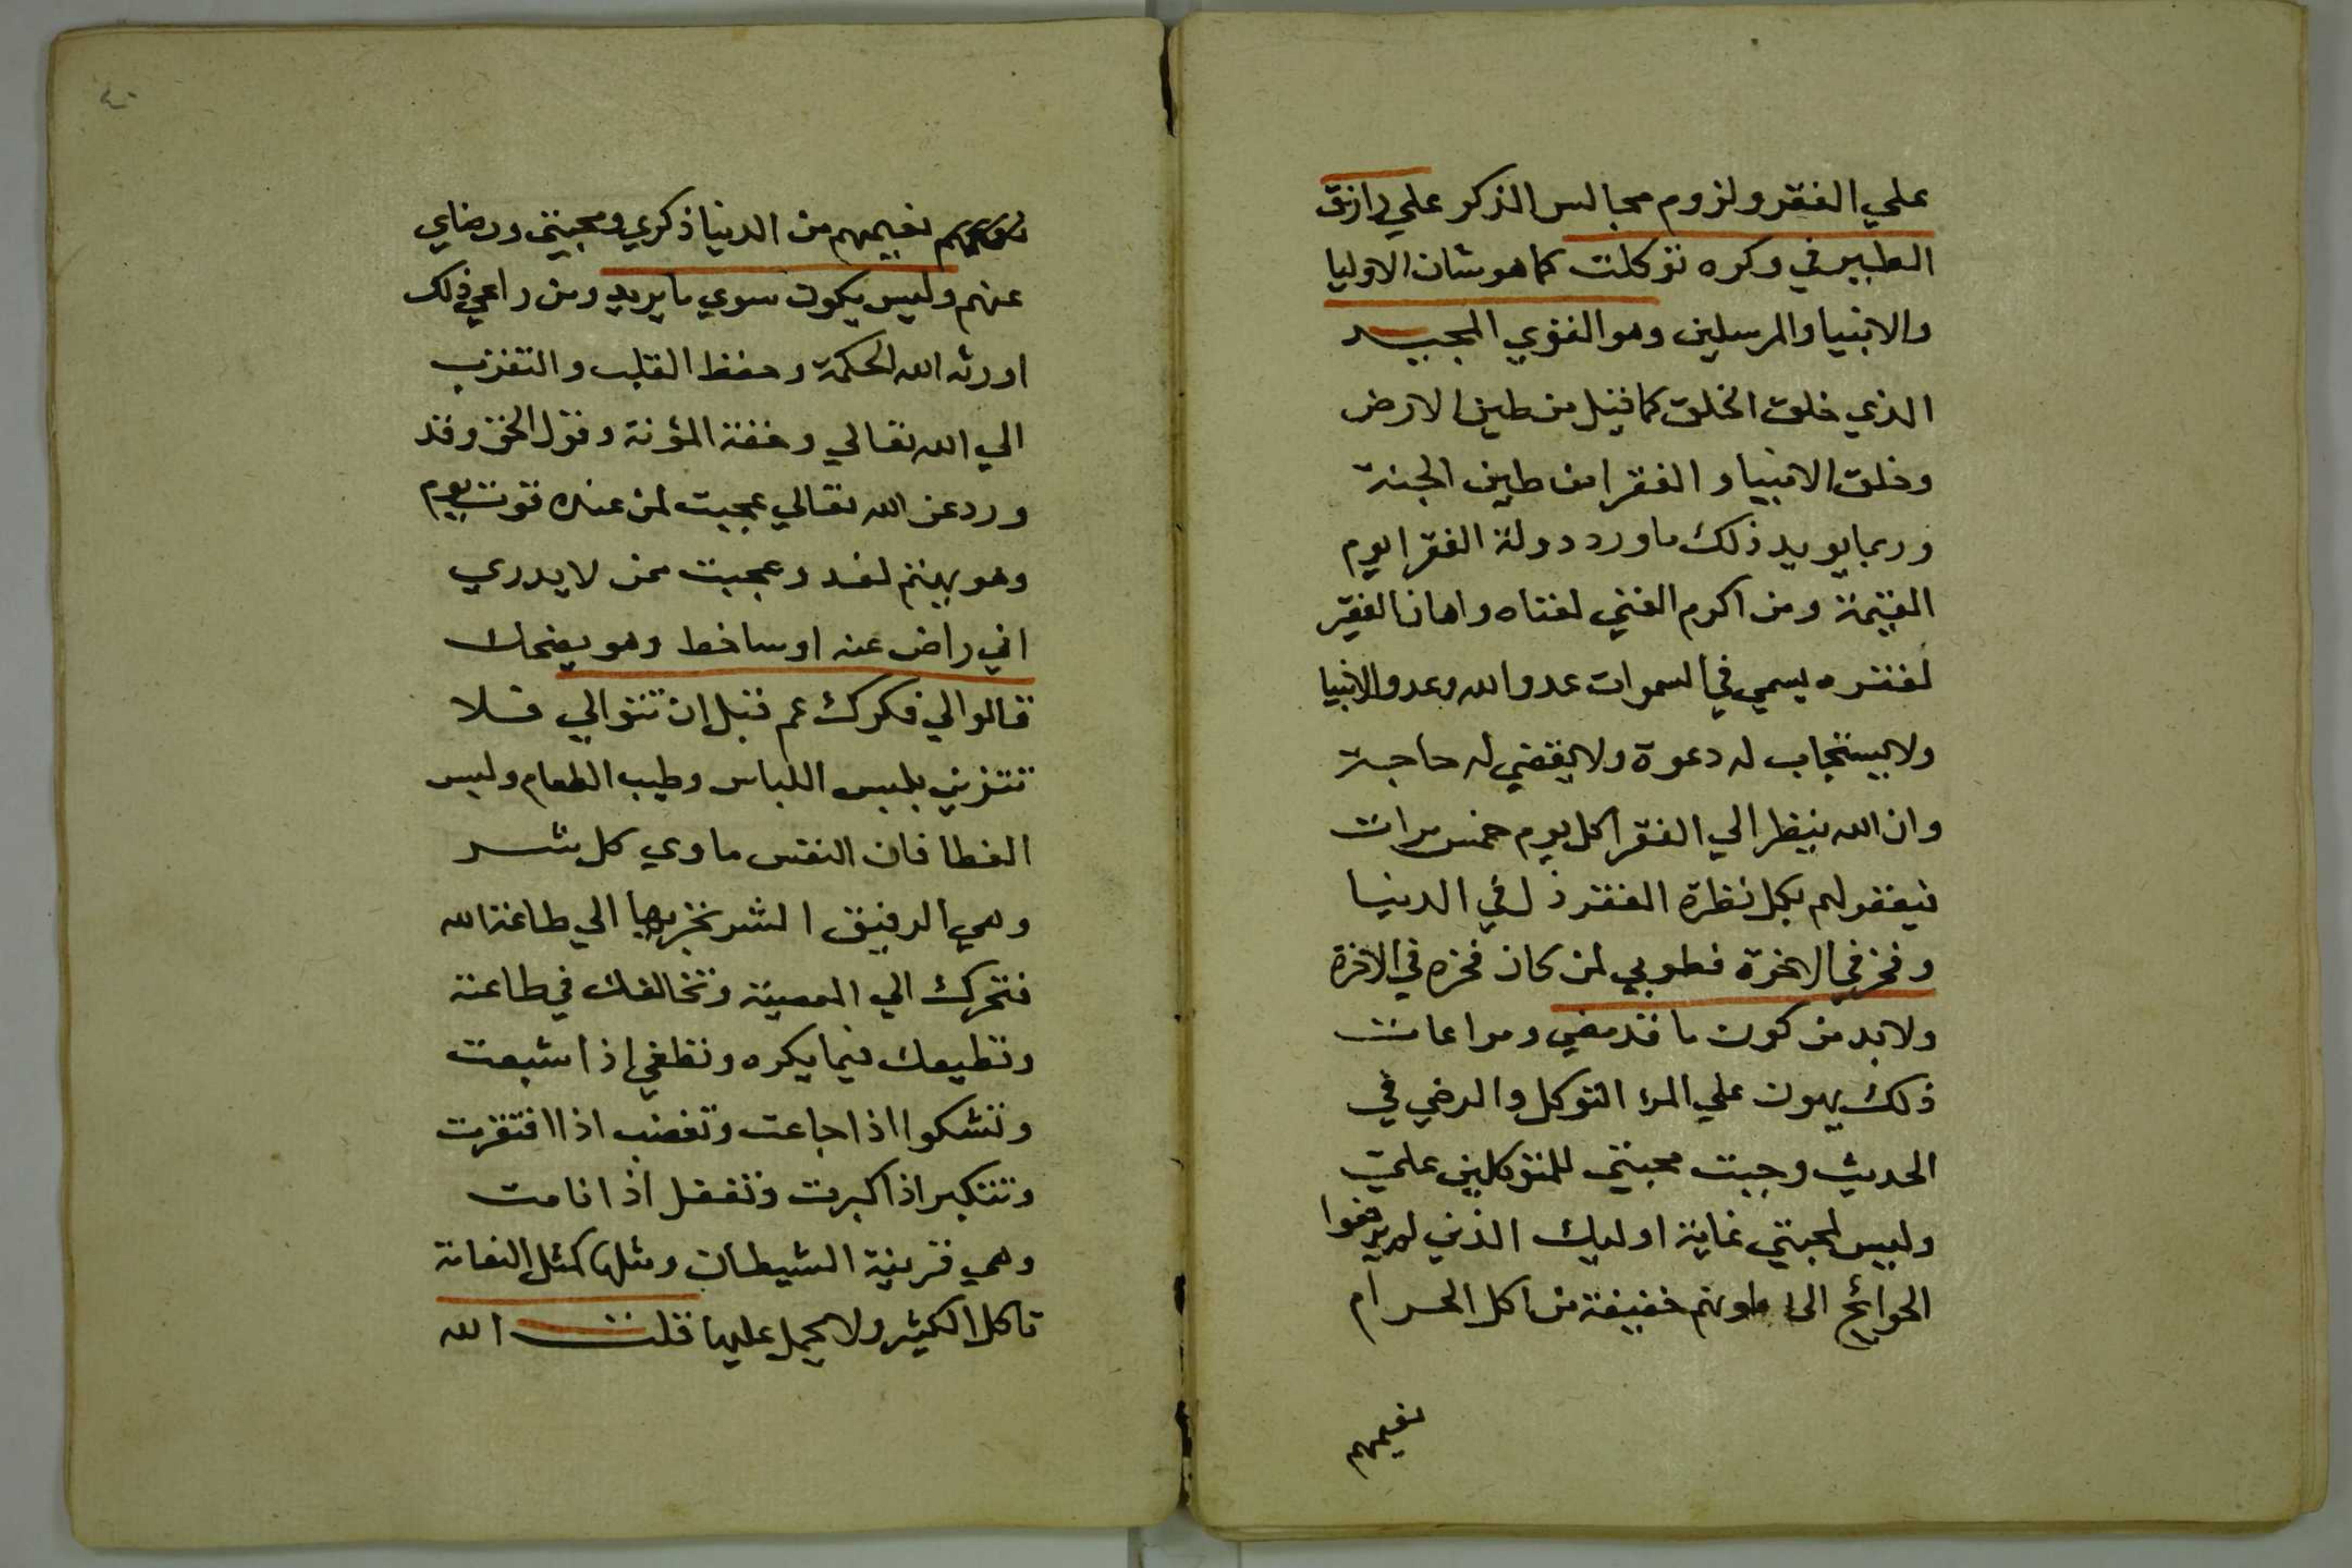 علي الفقر ولزوم مجالس الذكر علي رازق
الطير في وكره توكلت كما هو شان الاوليا
والانبيا والمرسلين وهو القوي المجيد
الذي خلق الخلق كما قيل من طين الارض
وخلق الانبيا والفقرا من طين الجنة
وربما يويد ذلك ما ورد دولة الفقرا يوم
القيمة ومن اكرم الغني لغناه واهان الفقير
لفقره يسمي في السموات عدو الله وعدو الانبيا
ولا يستجاب له دعوة ولا يقضي له حاجة
وان الله ينظر الي الفقرا كل يوم خمس مرات
فيغفر لهم بكل نظرة الفقر ذل في الدنيا
وفخر في الاخرة فطوبي لمن كان فخره في الاخرة
ولا بد من كون ما قد مضي ومراعات
ذلك يهون علي المرء التوكل والرضي في
الحديث وجبت محبتي للمتوكلين علي
وليس لمحبتي غاية اوليك الذين لم يرفعوا
الحوائج الى بطونهم خفيفة من اكل الحرام
نعيمهم
نعيمهم من الدنيا ذكري ومحبتي ورضاي
عنهم وليس يكون سوي ما يريد ومن راعي ذلك
اورثه الله الحكمة وحفظ القلب والتقرب
الي الله تعالي وخفة المؤنة وقول الحق وقد
ورد عن الله تعالي عجبت لمن عنده قوت يوم
وهو يهتم لغد وعجبت ممن لا يدري
اني راض عنه او ساخط وهو يضحك
قالوا لي فكرك عم قبل ان تتوالي فلا
تتزين بلبس اللباس وطيب الطعام ولبس
الغطا فان النفس ماوي كل شر
وهي الرفيق الشر تجرها الي طاعة الله
فتجرك الي المعصية وتخالفك في طاعته
وتطيعك فيما يكره وتطغي اذا شبعت
وتشكوا اذا جاعت وتغضب اذا افتقرت
وتتكبر اذا كبرت وتغفل اذا نامت
وهي قرينة الشيطان ومثلها كمثل النعامة
تاكل الكثير ولا يحمل عليها قلت الله